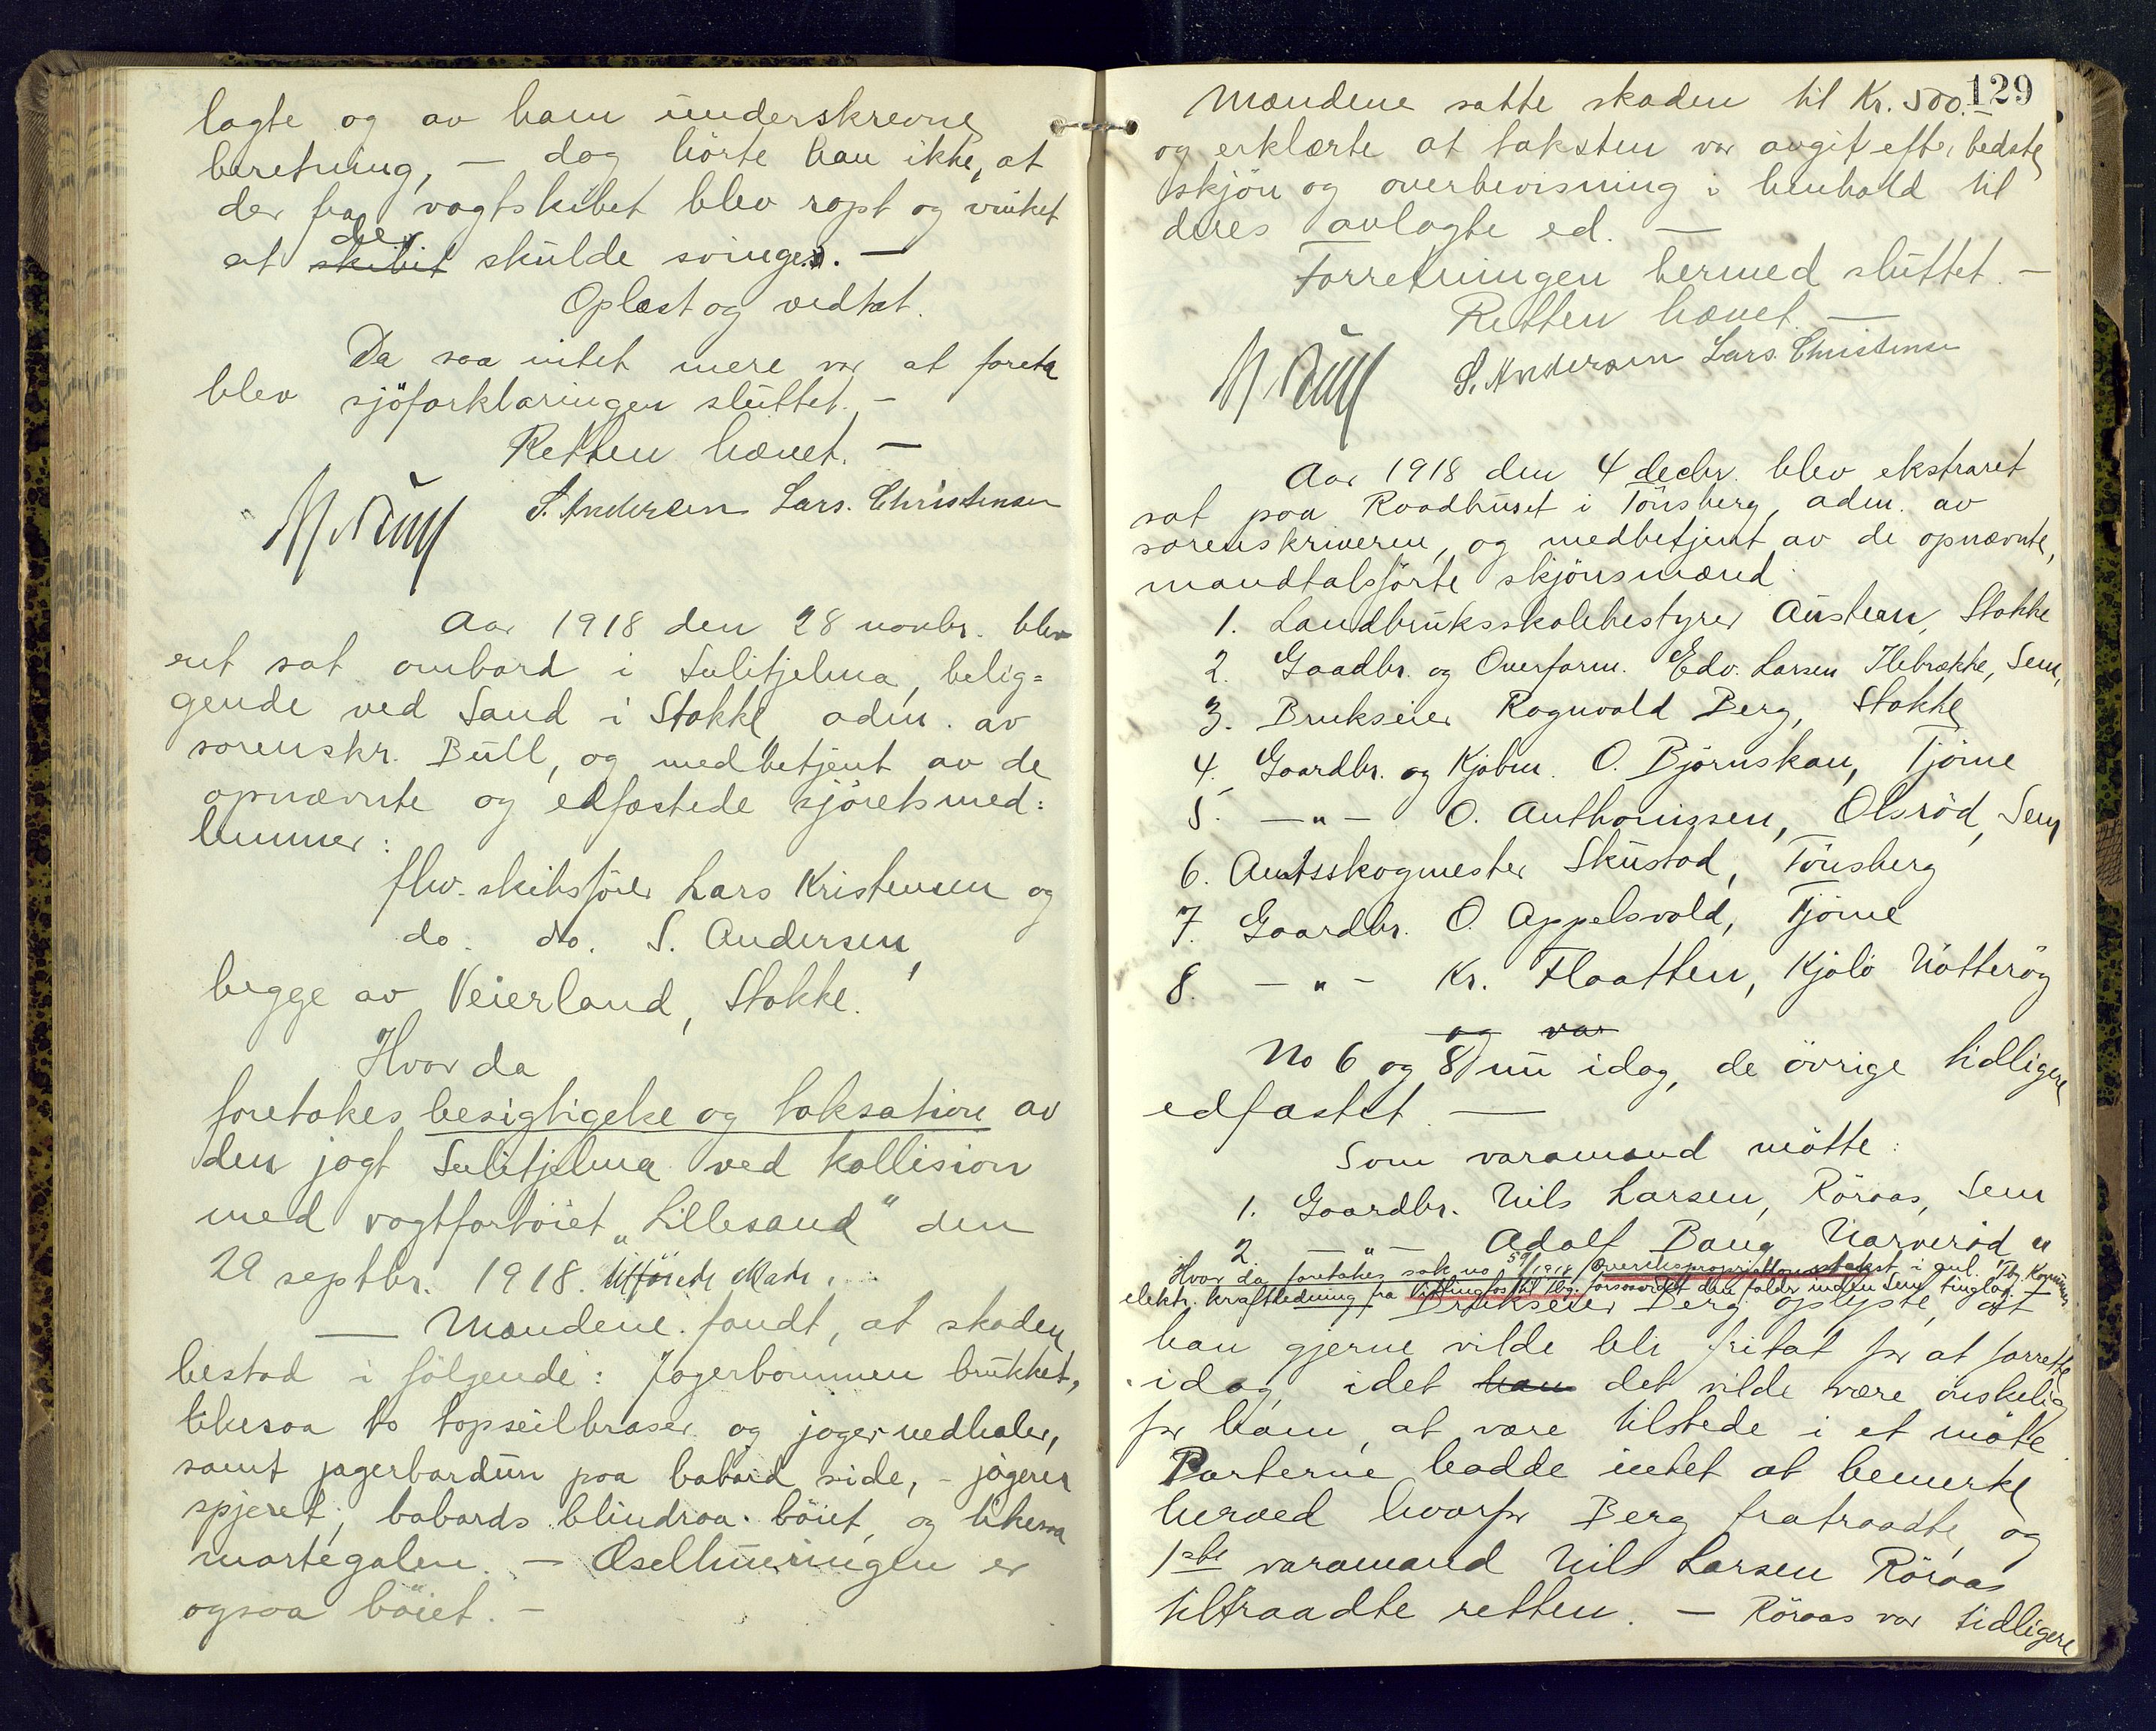 lagte og av ham underskrevne
beretning, — dog hörte han ikke, at
der fra vagtskibet blev ropt og vinket
der
at skibet skulde svinges. —
Oplæst og vedtat.
Da saa intet mere var at foreta
blev sjöforklaringen sluttet. —
Retten hævet. —
S. Andersen Lars. Christensen
Aar 1918 den 28 novbr. blev
ret sat ombord i Sulitjelma, belig=
gende ved Sand i Stokke adm. av
sorenskr. Bull, og medbetjent av de
opnævnte og edfæstede sjöretsmed=
lemmer:
fhv. skibsförer Lars Kristensen og
do. do. S. Andersen,
begge av Veierland, Stokke.
Hvor da
foretokes besigtigelse og taksation av
den jagt Sulitjelma ved kollision
med vagtfartöiet „Lillesand" den
29 septbr. 1918. tilförete skade.
— Mændene fandt, at skaden
bestod i fölgende: Jagerbommen brukket,
likesaa to topseilbraser og jager nedhaler,
samt jagerbardun paa babord side, – jageren
spjeret, babords blindraa böiet, og likesaa
martegalen. — Æselhuvringen er
ogsaa böiet. —
129
Mændene satte skaden til Kr. 500.—
og erklærte at taksten var avgit efter bedste
skjön og overbevisning i henhold til
deres avlagte ed. —
Forretningen hermed sluttet. —
Retten hævet. —
S. Andersen Lars. Christensen
Aar 1918 den 4 decbr. blev ekstraret
sat paa Raadhuset i Tönsberg, adm. av
sorenskriveren, og medbetjent av de opnævnte,
mandtalsförte skjönsmænd:
1. Landbruksskolebestyrer Austeen, Stokke
2. Gaadbr. og Overform. Edv. Larsen Ilebrække, Sem,
3. Brukseier Ragnvald Berg, Stokke
4. Gaardbr. og Kjøbm. O. Björnskau, Tjöme
5. — " — O. Anthonissen, Olsröd, Sem
6. Amtsskogmester Skustad, Tönsberg
7. Gaardbr. O. Appelsvold, Tjöme
8. — " — Kr. Flaatten, Kjölö Nötterög
og var
No 6 og 8 nu idag, de övrige tidligere
edfæstet. —
Som varamænd mötte:
1. Gaardbr. Nils Larsen, Röraas, Sem
2. — " — Adolf Bang Narveröd "
Hvor da foretokes sak no 59/1918 Overekspropriationstakst i anl. Tbg. Kommunes
elektr. kraftledning fra Vittingfos til Tbg. forsaavidt den falder inden Sem tinglag. —
Brukseier Berg oplyste, at
han gjerne vilde bli fritat for at forrette
idag, idet han det vilde være önskelig
for ham, at være tilstede i et möte.
Parterne hadde intet at bemerke
herved hvorfor Berg fratraadte, og
1ste varamand Nils Larsen Röraas
tiltraadte retten. — Röraas var tidligere